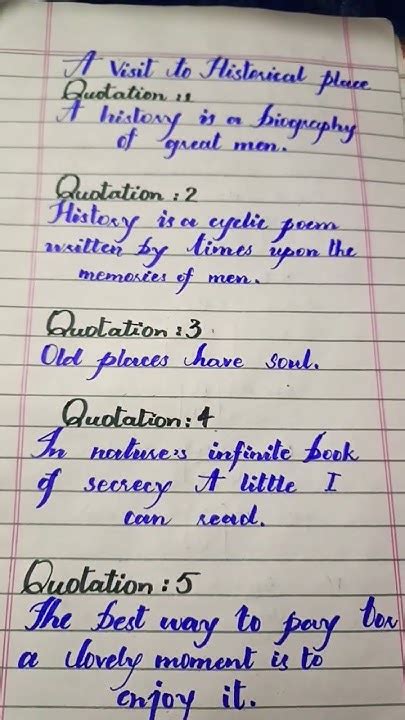 A Visit to Historical place
Quotation : 1
A history is a biography
of great men.
Quotation : 2
History is a cyclic poem
written by times upon the
memories of men.
Quotation : 3
Old places have soul.
Quotation : 4
In nature's infinite book
of secrecy A little I
can read.
Quotation : 5
The best way to pay for
a lovely moment is to
enjoy it.